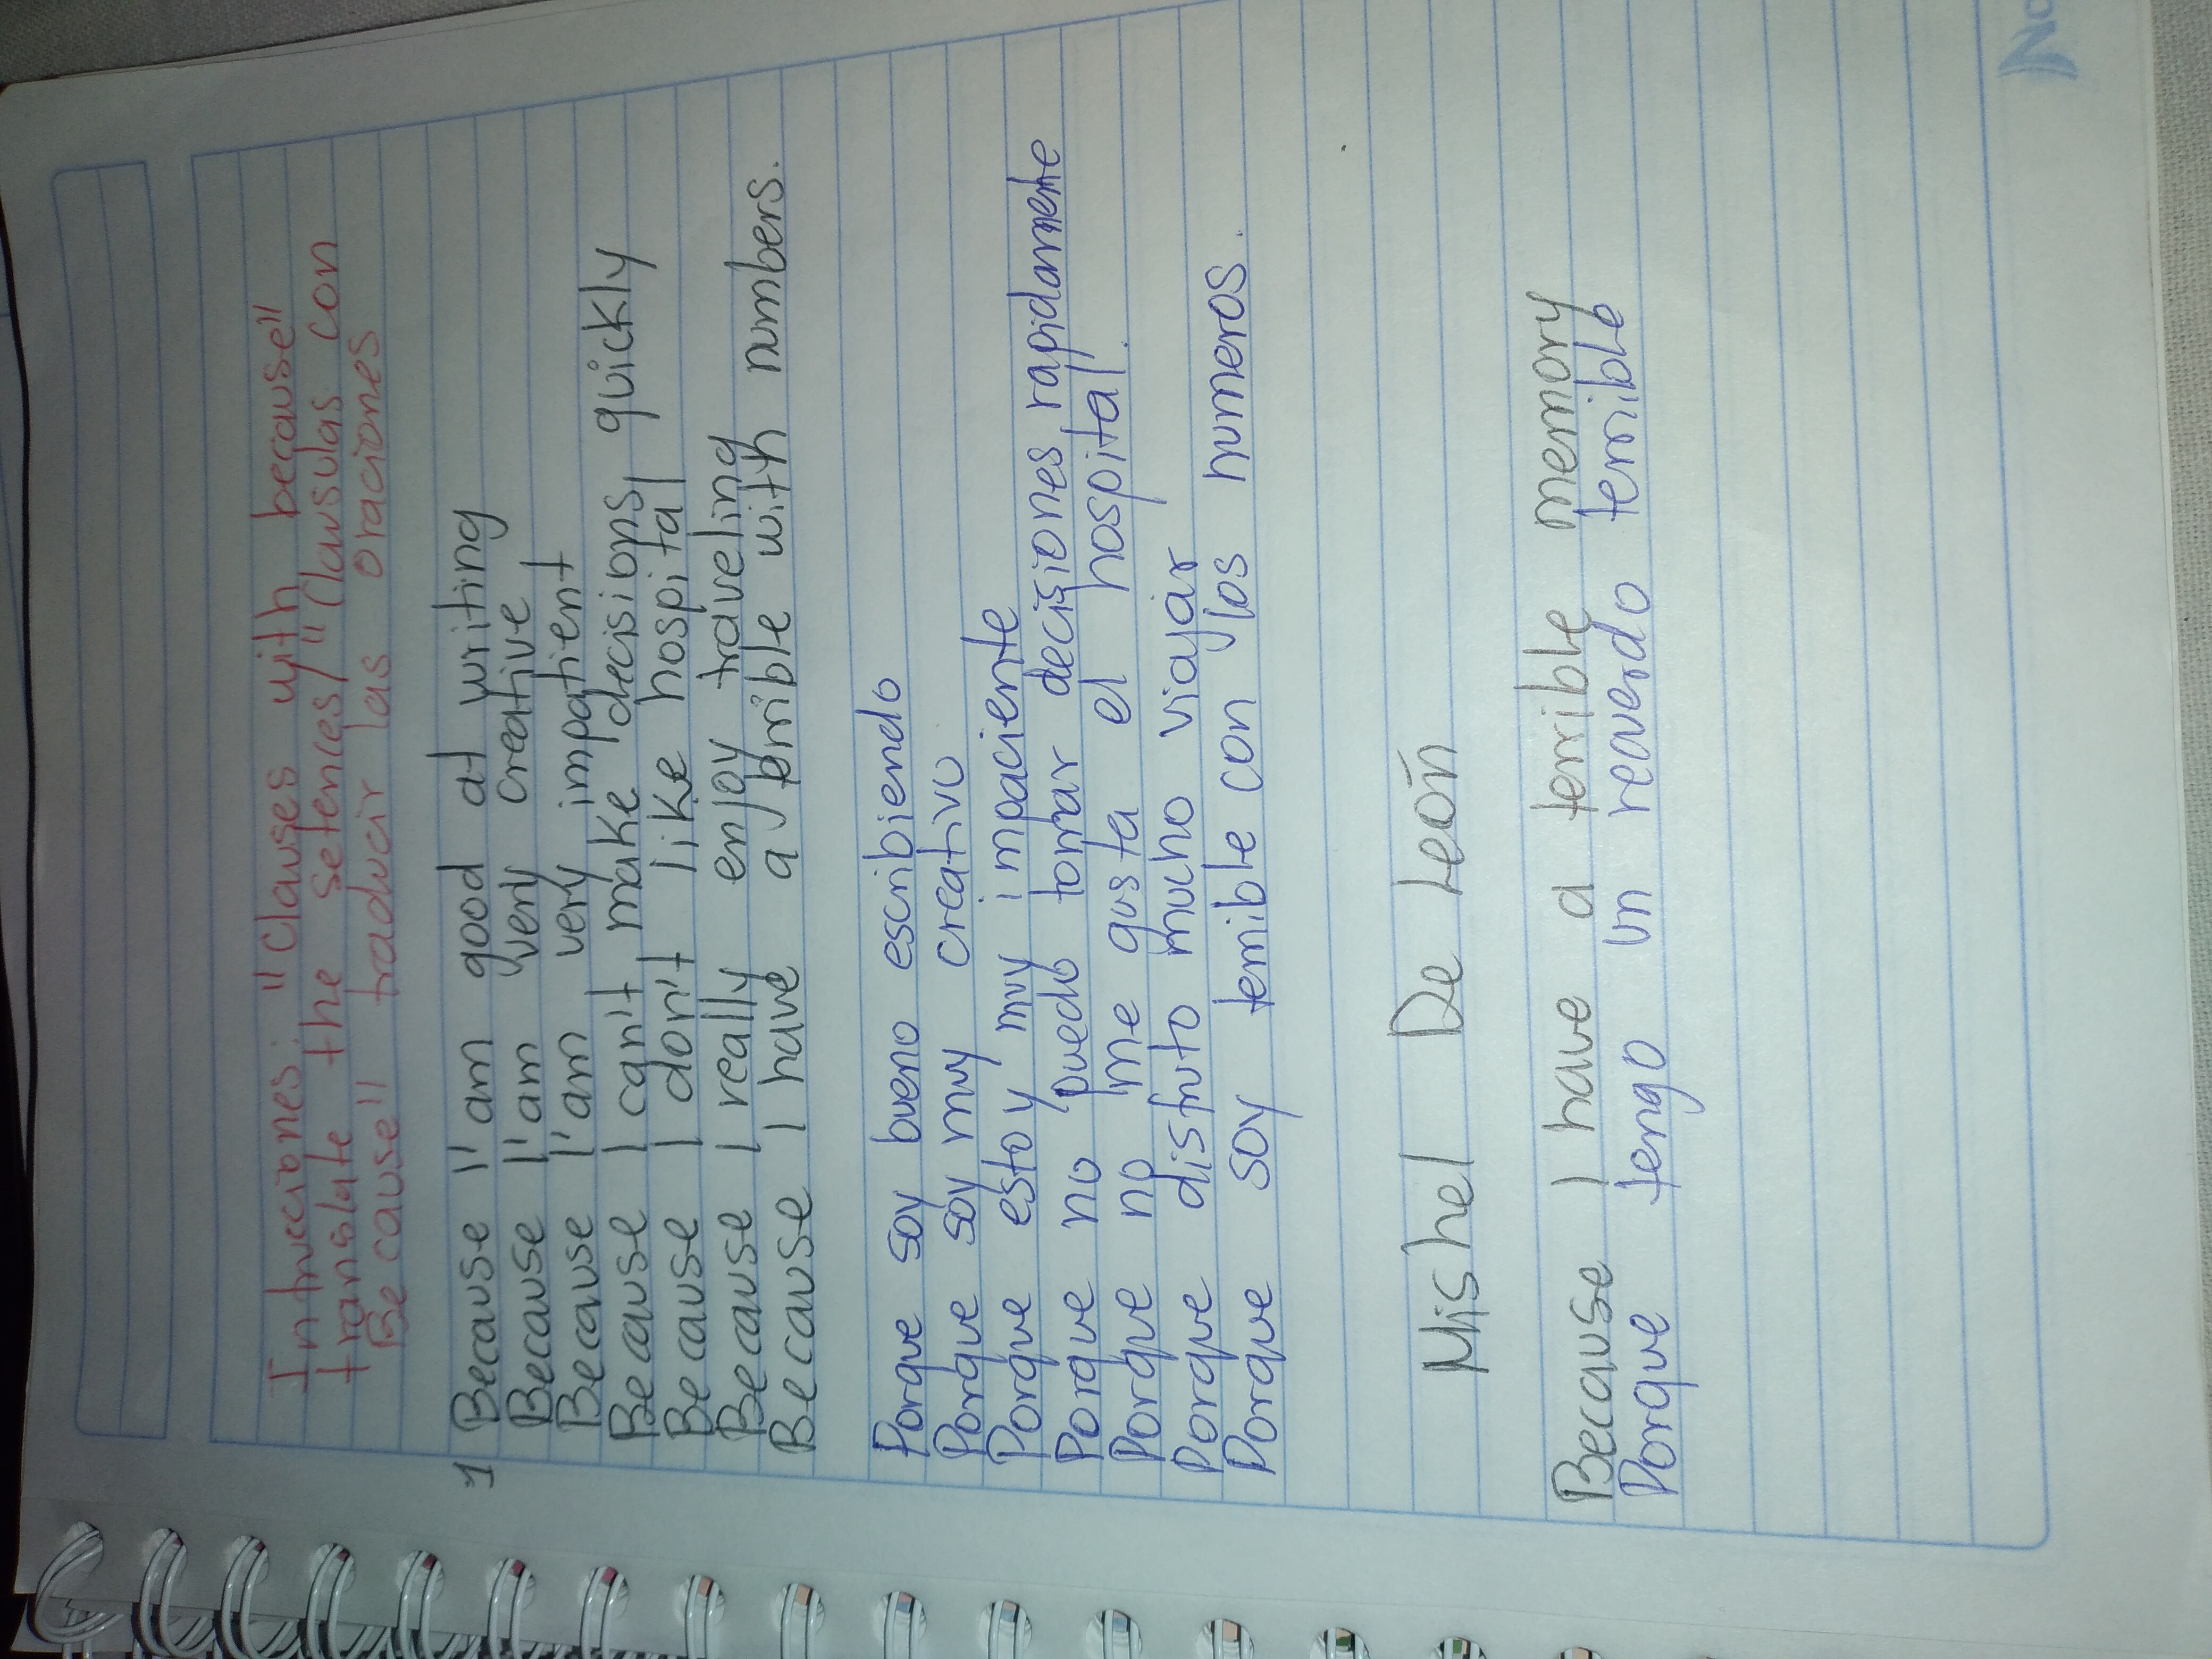 Intrucciones: "Clauses with because"
translate the setences/"Clausulas con
Because" traducir las oraciones
1 Because I'am good at writing
Because I'am very creative
Because I'am very impatient
Because I can't make decisions quickly
Because I don't like hospital
Because I really enjoy traveling
Because I have a terrible with numbers.
Porque soy bueno escribiendo
Porque soy muy creativo
Porque estoy muy impaciente
Porque no puedo tomar decisiones rapidamente
Porque no me gusta el hospital.
Porque disfruto mucho viajar
Porque soy temible con los numeros.
Mishel De León
Because I have a terrible memory
Porque tengo un recuerdo terrible